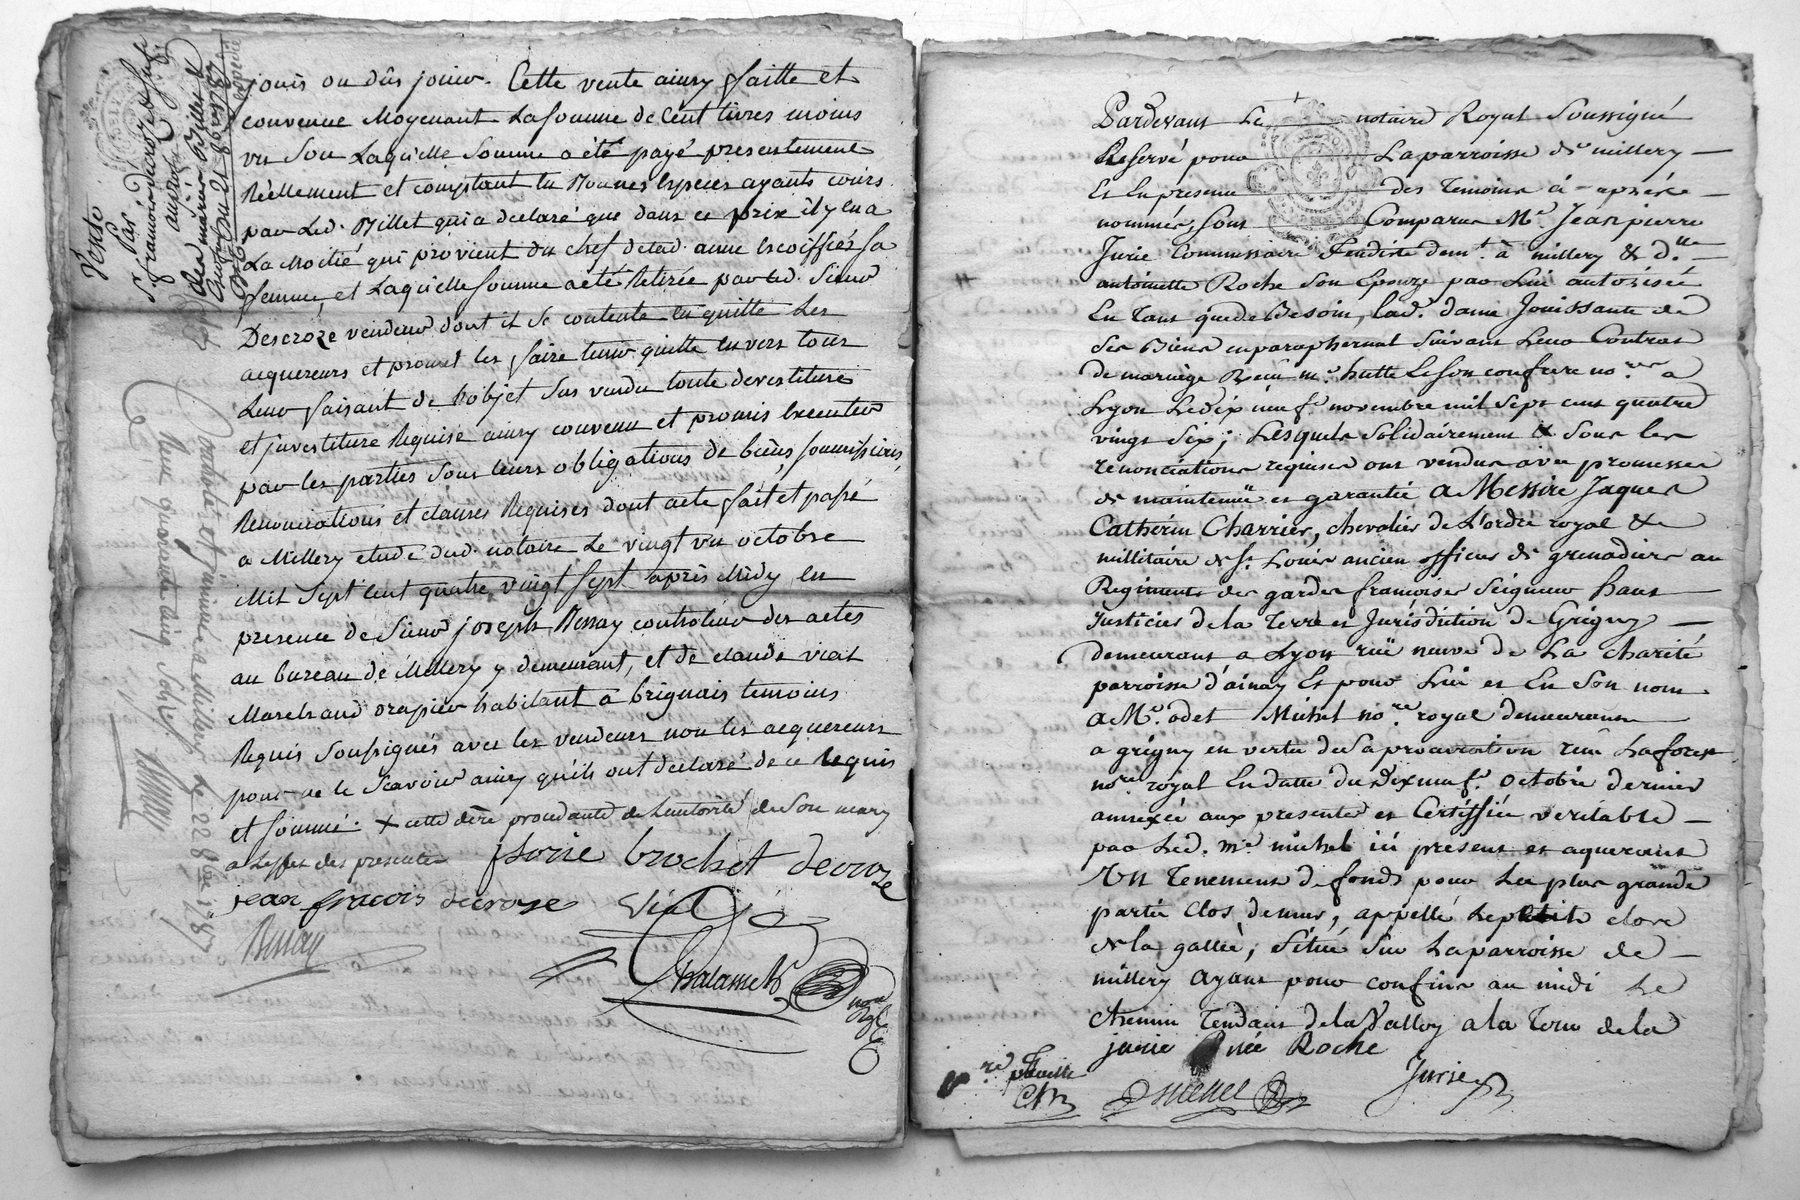 Vente
Par
Sr francois decroze & sa fe
au profit
des mariés Billet &
Du 21 8bre 1787
jouis ou dûs jouir. Cette vente ainsy faitte et
convenue Moyenant La somme de Cent livres moins
un Sou Laquelle Somme a été payé presentement
Réellement et comptant en Bonnes Especes ayants cours
par Led. Billet qui a declaré que dans ce prix il y en a
La Moitié qui provient du chef de lad. anne Escoffier sa
femme, et Laquelle somme a été Retirée par Led. Sieur
Descroze vendeur dont il Se contente en quitte Les
acquereurs et promet les faire tenir quitte envers tous
Leur faisant de L'objet Sus vendu toute devestiture
et investiture Requise ainsy convenu et promis Executer
par les parties Sous leurs obligations de biens, soumissions,
Renonciations et clauses Requises dont acte fait et passé
a Millery etude dud. notaire Le vingt un octobre
Mil Sept Cent quatre vingt Sept après Midy en
presence de Sieur joseph Bessay controleur des actes
au bureau de Millery y demeurant, et de claude vial
Marchand drapier habitant a brignais temoins
Requis Soussignés avec les vendeurs non les acquereurs
pour ne le Scavoir ainsy qu'ils ont declaré de ce Requis
et sommé. + cette dere procedante de Lautorité de Son mary
a Leffet des presentes
brochet decroze
jean francois decroze Vial
Bessay
Chalamel
not
Rgl
Controlé et insinué a Millery le 22 8bre 1787
Reçu quarante cinq sols
Bessay
Pardevant Le notaire Royal Soussigné
Reservé pour La parroisse de millery
Et En presence des Temoins à-après
nommés, Sont Comparus Mr. Jean pierre
Jurie Commissaire Feudiste demt. à millery & dlle.
antoinette Roche Son Epouze par Lui autorisée
En Tant que de Besoin, lad. dame Jouissante de
Ses Biens en paraphernal Suivant Leur Contrat
de mariage Reçu me. hutte Leson confrere nores a
Lyon Le dix neuf. novembre mil sept cent quatre
vingt Six; Lesquels Solidairement & Sous les
renonciations requises ont vendus avec promesse
de maintenüe et garantie A Messire Jaques
Catherin Charrier, chevalier de L'ordre royal &
millitaire de St. Louis ancien officier de grenadiers au
Regiment des gardes francoises Seigneur haut
Justicier de la Terre et Jurisdiction de Grigny
demeurant a Lyon rüe neuve de La charité
parroisse d'ainay Et pour Lui et En Son nom
a Me. odet Michel nore royal demeurant
a grigny en vertu de Sa procuration reçue Laforest
nore royal En datte du dix neuf. octobre dernier
annexée aux presentes et Certiffiée veritable
par Led. me. michel ici present et aquerant
Un Tenement de fonds pour La plus grande
partie Clos de murs, appellé Le petit clos
de la gallée, Situé Sur La parroisse de
millery ayant pour confins au midi Le
chemin Tendant de la Valloy a la Tour de la
jurie née Roche
re feuille
Michel Jurie